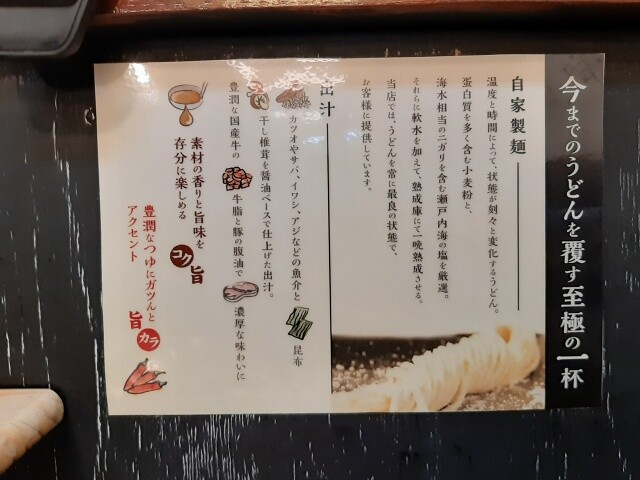 今までのうどんを覆す至極の一杯
自家製麺
温度と時間によって、状態が刻々と変化するうどん。
蛋白質を多く含む小麦粉と、
海水相当のニガリを含む瀬戸内海の塩を厳選。
それらに軟水を加えて、熟成庫にて一晩熟成させる。
当店では、うどんを常に最良の状態で、
お客様に提供しています。
出汁
カツオやサバ、イワシ、アジなどの魚介と昆布
干し椎茸を醤油ベースで仕上げた出汁。
豊潤な国産牛の牛脂と豚の腹油で濃厚な味わいに
素材の香りと旨味を
存分に楽しめる
コク旨
豊潤なつゆにガツんと
アクセント
旨カラ